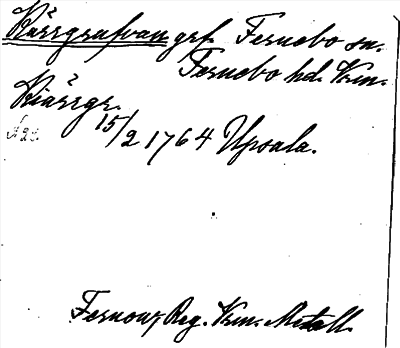 Kärrgrufvan grf Fernebo sn.
Fernebo hd. Vrm.
Kiärrgr.
15/2 1764 Upsala.
Fernow, Reg. Vrm. Metall.